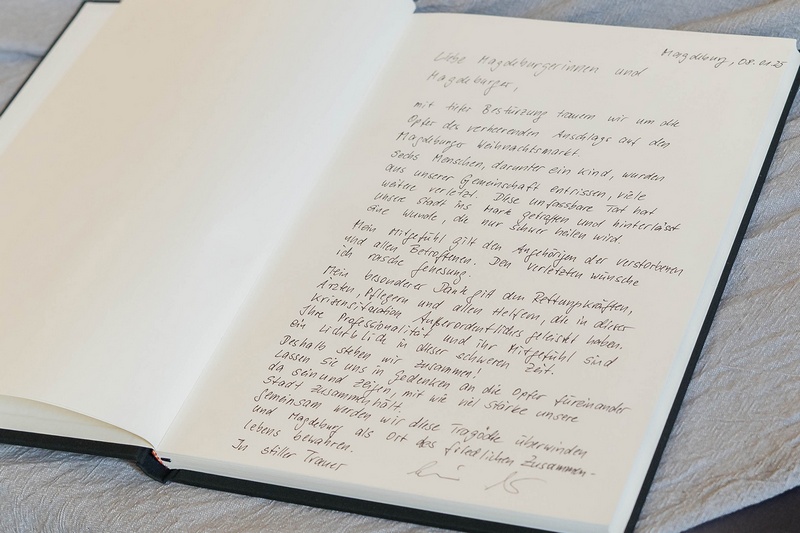 Magdeburg, 08.01.25
Liebe Magdeburgerinnen und
Magdeburger,
mit tiefer Bestürzung trauern wir um die
Opfer des verheerenden Anschlags auf den
Magdeburger Weihnachtsmarkt.
Sechs Menschen, darunter ein Kind, wurden
aus unserer Gemeinschaft entrissen, viele
weitere verletzt. Diese unfassbare Tat hat
unsere Stadt ins Mark getroffen und hinterlässt
eine Wunde, die nur schwer heilen wird.
Mein Mitgefühl gilt den Angehörigen der Verstorbenen
und allen Betroffenen. Den Verletzten wünsche
ich rasche Genesung.
Mein besonderer Dank gilt den Rettungskräften,
Ärzten, Pflegern und allen Helfern, die in dieser
Krisensituation Außerordentliches geleistet haben.
Ihre Professionalität und ihr Mitgefühl sind
ein Lichtblick in dieser schweren Zeit.
Deshalb stehen wir zusammen!
Lassen Sie uns in Gedenken an die Opfer füreinander
da sein und zeigen, mit wie viel Stärke unsere
Stadt zusammenhält.
Gemeinsam werden wir diese Tragödie überwinden
und Magdeburg als Ort des friedlichen Zusammen-
lebens bewahren.
In stiller Trauer